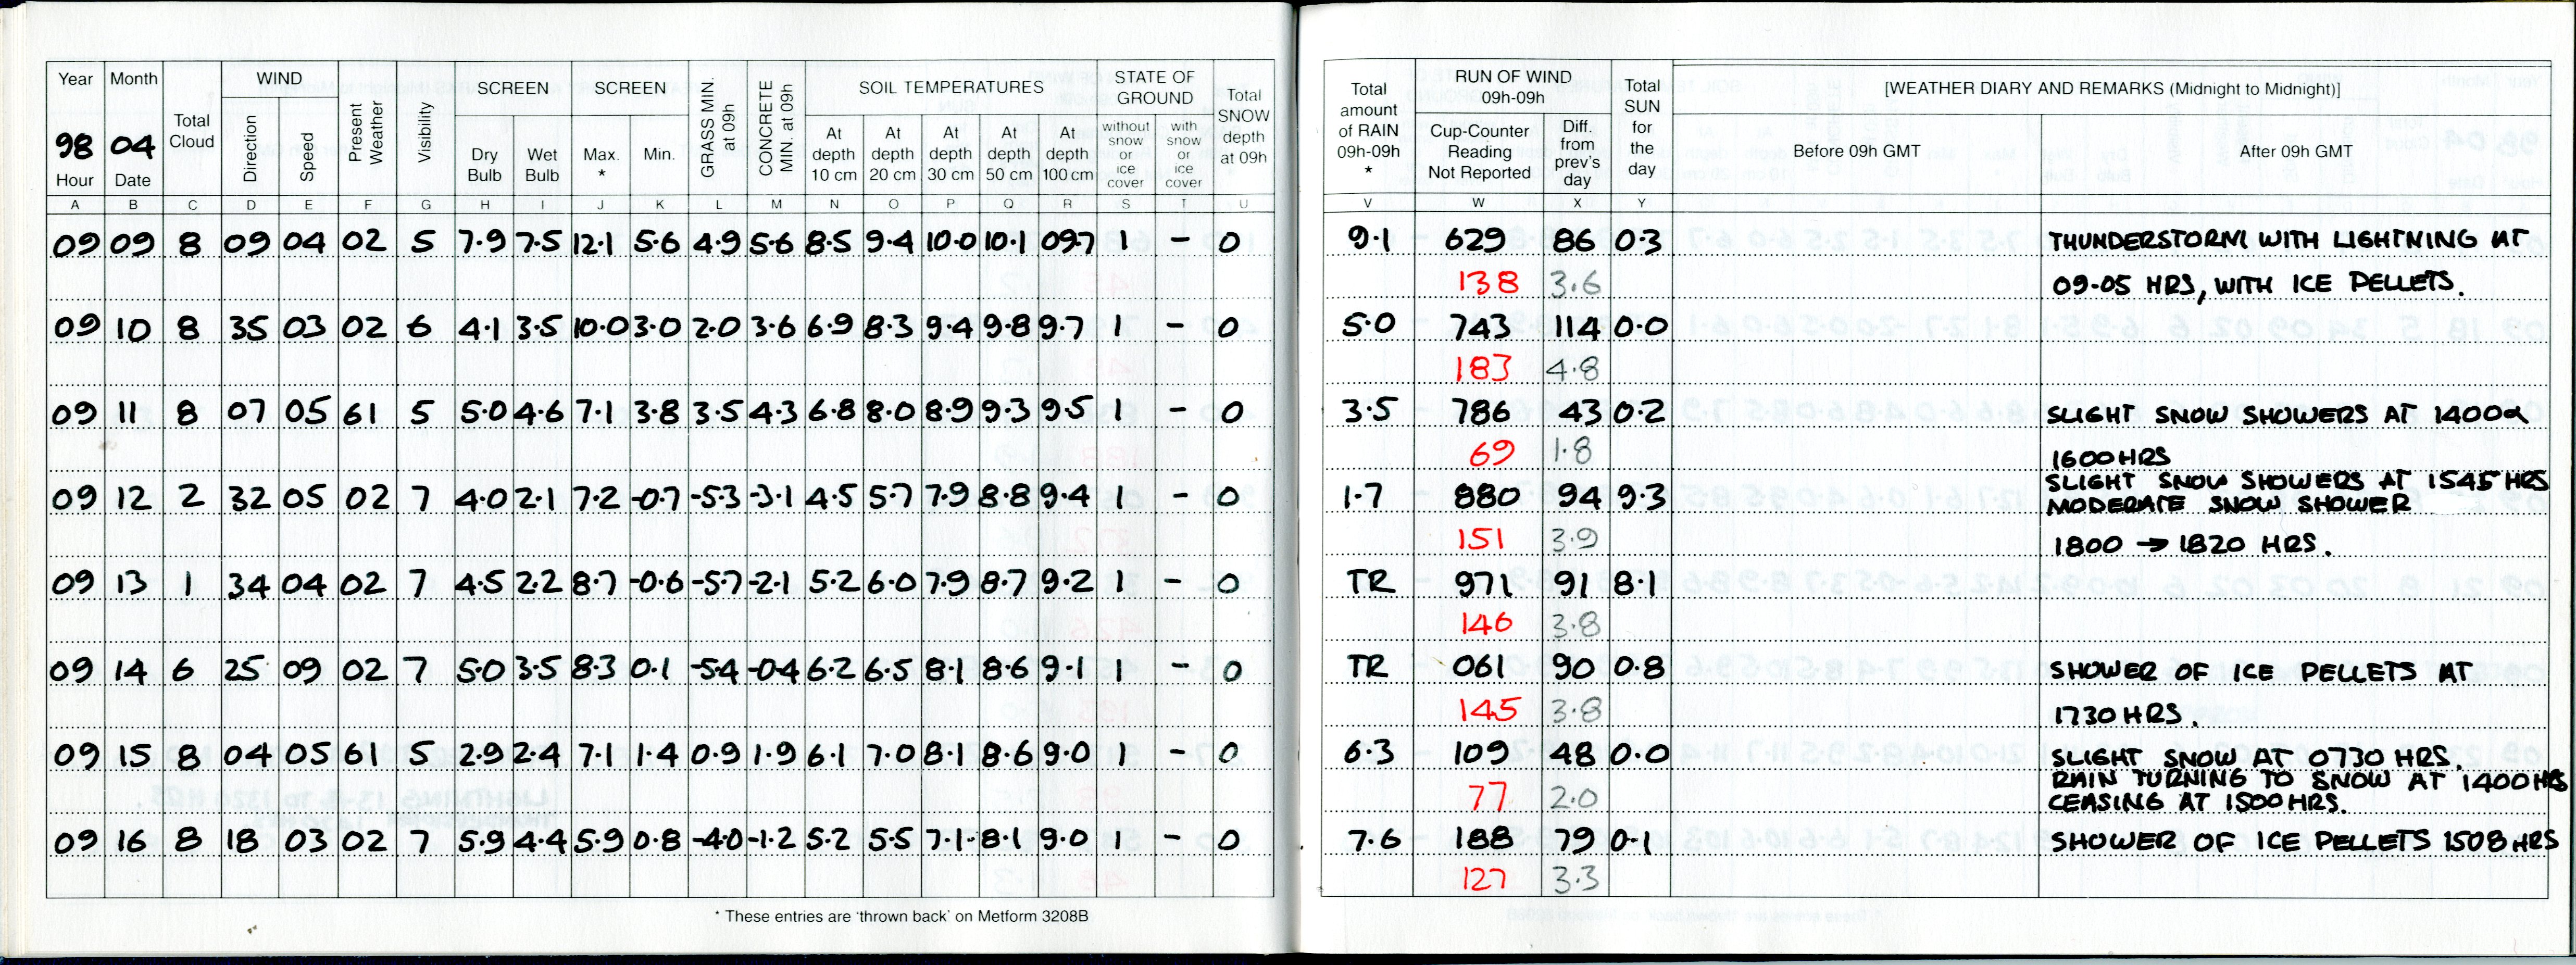 Year Month Total Cloud WIND Present Weather Visibility SCREEN SCREEN GRASS MIN. at 09h CONCRETE MIN. at 09h SOIL TEMPERATURES STATE OF GROUND Total SNOW depth at 09h
98 04 Direction Speed Dry Bulb Wet Bulb Max. * Min. At depth 10 cm At depth 20 cm At depth 30 cm At depth 50 cm At depth 100 cm without snow or ice cover with snow or ice cover
Hour Date
A B C D E F G H I J K L M N O P Q R S T U
09 09 8 09 04 02 5 7.9 7.5 12.1 5.6 4.9 5.6 8.5 9.4 10.0 10.1 09.7 1 - 0
09 10 8 35 03 02 6 4.1 3.5 10.0 3.0 2.0 3.6 6.9 8.3 9.4 9.8 9.7 1 - 0
09 11 8 07 05 61 5 5.0 4.6 7.1 3.8 3.5 4.3 6.8 8.0 8.9 9.3 9.5 1 - 0
09 12 2 32 05 02 7 4.0 2.1 7.2 -0.7 -5.3 -3.1 4.5 5.7 7.9 8.8 9.4 1 - 0
09 13 1 34 04 02 7 4.5 2.2 8.7 -0.6 -5.7 -2.1 5.2 6.0 7.9 8.7 9.2 1 - 0
09 14 6 25 09 02 7 5.0 3.5 8.3 0.1 -5.4 -0.4 6.2 6.5 8.1 8.6 9.1 1 - 0
09 15 8 04 05 61 5 2.9 2.4 7.1 1.4 0.9 1.9 6.1 7.0 8.1 8.6 9.0 1 - 0
09 16 8 18 03 02 7 5.9 4.4 5.9 0.8 -4.0 -1.2 5.2 5.5 7.1 8.1 9.0 1 - 0
* These entries are 'thrown back' on Metform 3208B
Total amount of RAIN 09h-09h * RUN OF WIND 09h-09h Total SUN for the day [WEATHER DIARY AND REMARKS (Midnight to Midnight)]
Cup-Counter Reading Not Reported Diff. from prev's day Before 09h GMT After 09h GMT
V W X Y
9.1 629 86 0.3 THUNDERSTORM WITH LIGHTNING AT
138 3.6 09-05 HRS, WITH ICE PELLETS.
5.0 743 114 0.0
183 4.8
3.5 786 43 0.2 SLIGHT SNOW SHOWERS AT 1400 &
69 1.8 1600 HRS
SLIGHT SNOW SHOWERS AT 1545 HRS
1.7 880 94 9.3 MODERATE SNOW SHOWER
151 3.9 1800 → 1820 HRS.
TR 971 91 8.1
146 3.8
TR 061 90 0.8 SHOWER OF ICE PELLETS AT
145 3.8 1730 HRS.
6.3 109 48 0.0 SLIGHT SNOW AT 0730 HRS.
RAIN TURNING TO SNOW AT 1400 HRS
77 2.0 CEASING AT 1500 HRS.
7.6 188 79 0.1 SHOWER OF ICE PELLETS 1508 HRS
127 3.3